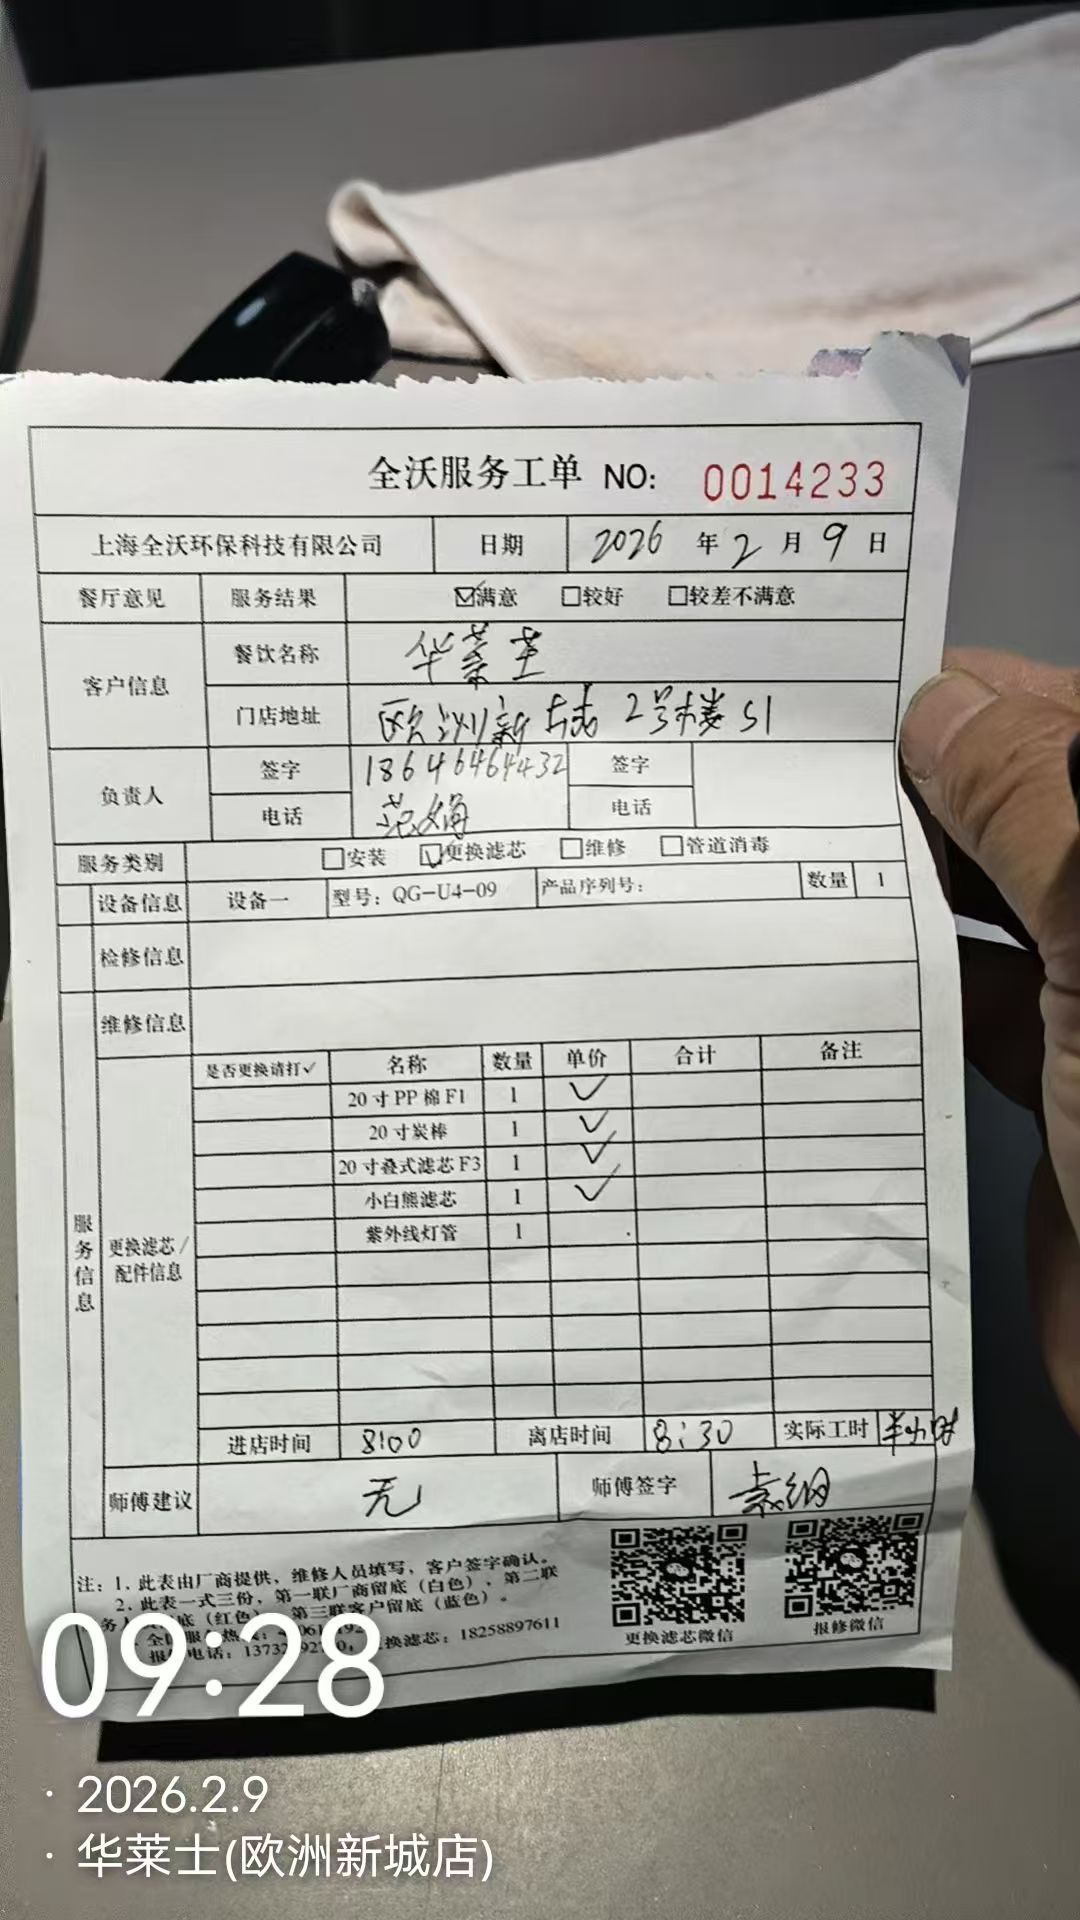 全沃服务工单 NO: 0014233
上海全沃环保科技有限公司 日期 2026 年 2 月 9 日
餐厅意见 服务结果 ☑满意 □较好 □较差不满意
客户信息 餐饮名称 华莱士
门店地址 欧洲新城 2号楼 S1
负责人 签字 18646464432 签字
电话 范娟 电话
服务类别 □安装 ☑更换滤芯 □维修 □管道消毒
设备信息 设备一 型号: QG-U4-09 产品序列号: 数量 1
检修信息
维修信息
服务信息
更换滤芯/配件信息
是否更换请打✓ 名称 数量 单价 合计 备注
20寸PP棉F1 1 ✓
20寸炭棒 1 ✓
20寸叠式滤芯F3 1 ✓
小白熊滤芯 1 ✓
紫外线灯管 1
进店时间 8:00 离店时间 8:30 实际工时 半小时
师傅建议 无 师傅签字
注: 1. 此表由厂商提供, 维修人员填写, 客户签字确认。
2. 此表一式三份, 第一联厂商留底 (白色), 第二联
底 (红色) 第三联客户留底 (蓝色)。
换滤芯: 18258897611
更换滤芯微信 报修微信
09:28
· 2026.2.9
· 华莱士(欧洲新城店)